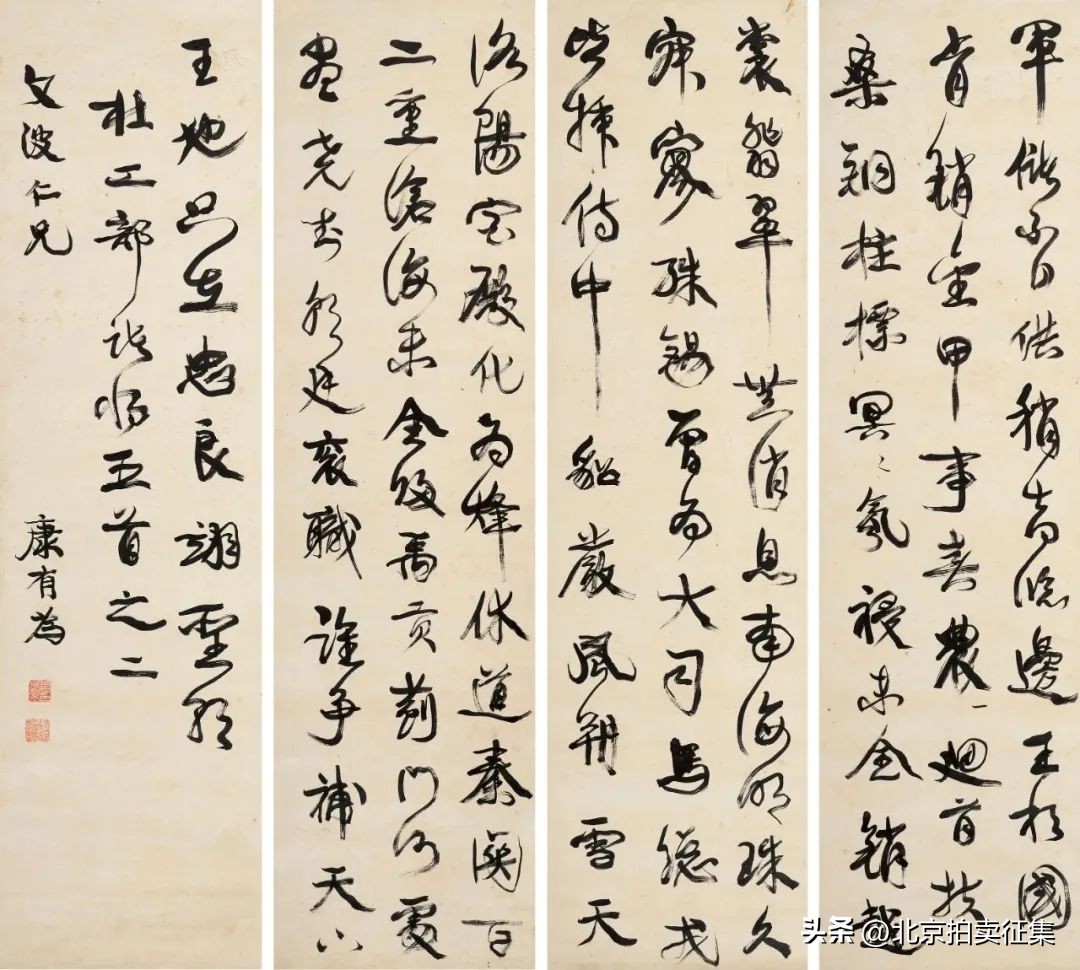 軍儲不自供稍喜臨邊王相國
肯銷金甲事春農一迴首扶
桑銅柱標冥〻氛祲未全銷越
裳翡翠無消息南海明珠久
寂寥殊錫曾為大司馬總戎
皆插侍中貂嚴風朔雪天
洛陽宮殿化為烽休道秦關百
二重滄海未全歸禹貢薊門何處
盡堯封朝廷袞職誰爭補天下
王地只在忠良翊聖朝
杜工部諸將五首之二
文波仁兄
康有為
头条 @北京拍卖征集